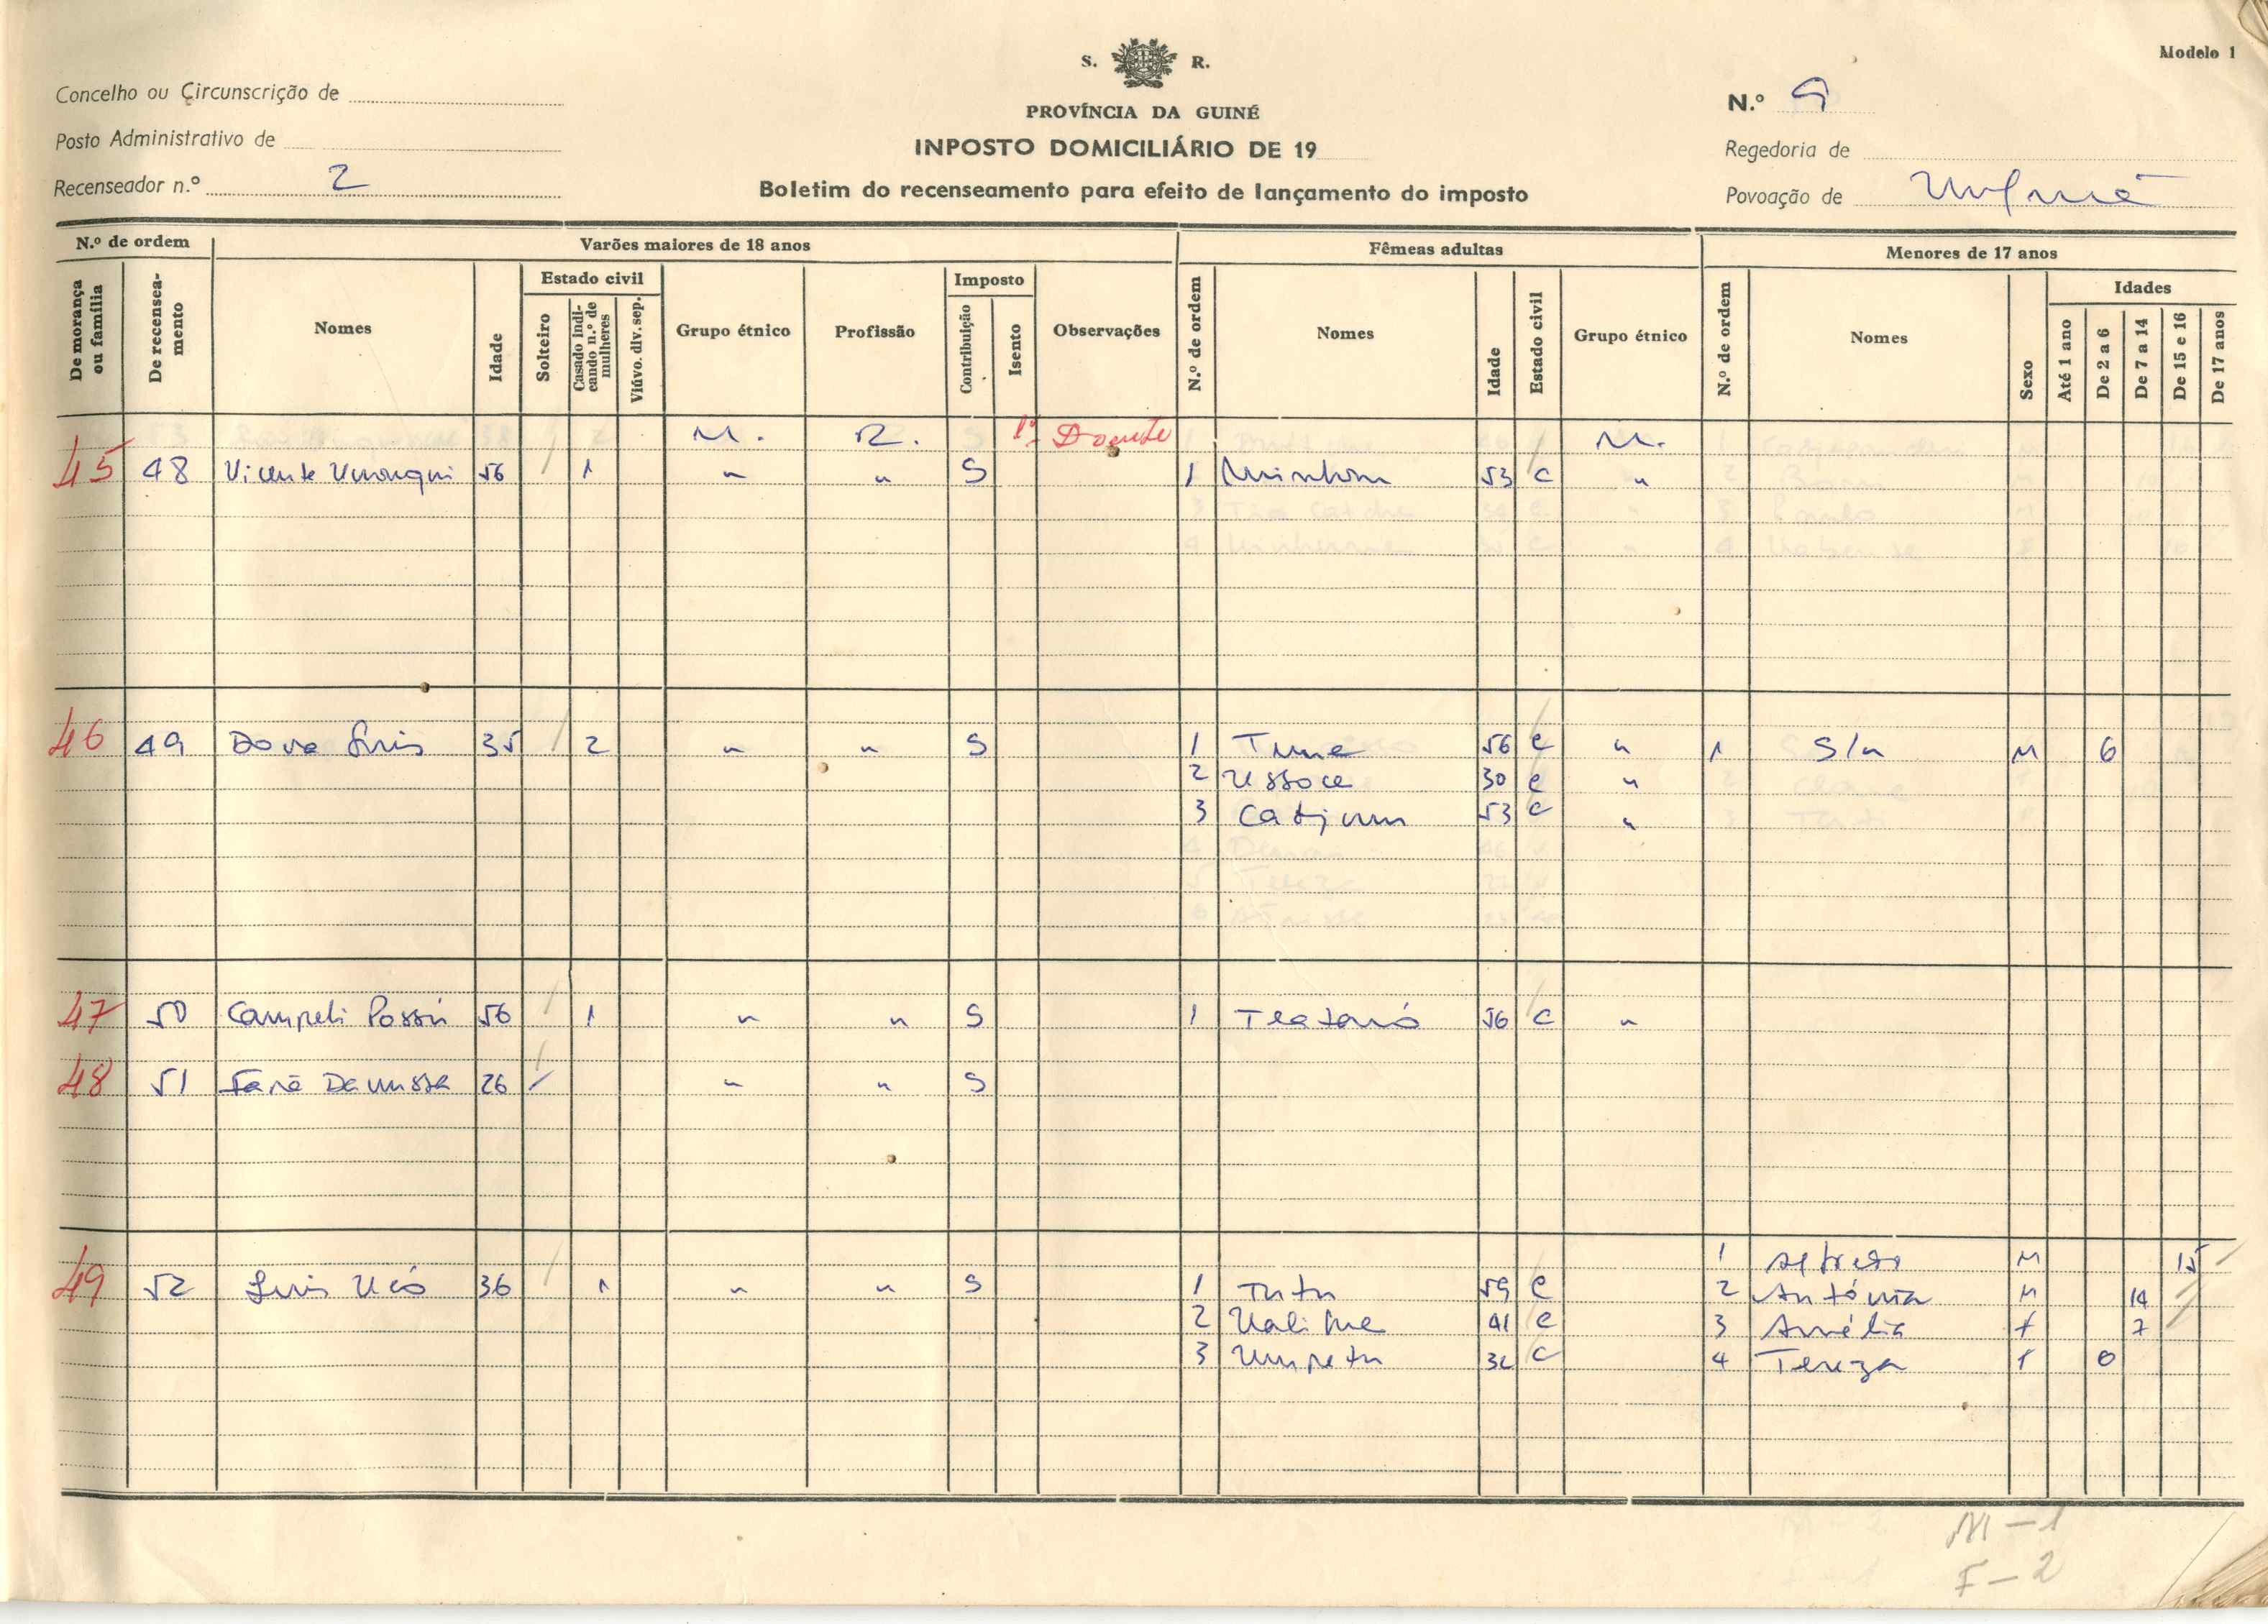 Modelo 1
S. R.
Concelho ou Circunscrição de
PROVÍNCIA DA GUINÉ
N.º 9
Posto Administrativo de
INPOSTO DOMICILIÁRIO DE 19
Regedoria de
Recenseador n.º 2
Boletim do recenseamento para efeito de lançamento do imposto
Povoação de
N.º de ordem Varões maiores de 18 anos Fêmeas adultas Menores de 17 anos
De morança ou família
De recensea-
mento
Nomes
Idade
Estado civil
Solteiro
Casado indi-
cando n.º de
mulheres
Viúvo. div. sep.
Grupo étnico
Profissão
Imposto
Contribuição
Isento
Observações
N.º de ordem
Nomes
Idade
Estado civil
Grupo étnico
N.º de ordem
Nomes
Sexo
Idades
Até 1 ano
De 2 a 6
De 7 a 14
De 15 e 16
De 17 anos
M. R. Doente M.
45 48 Vicente 56 1 " " S 1 53 C "
46 49 35 2 " " S 1 56 C " 1 S/n M 6
2 Ussoce 30 C "
3 53 C "
47 50 56 1 " " S 1 56 C "
48 51 26 " " S
1 Alfredo M 15
49 52 Luis 36 1 " " S 1 Tutu 59 C 2 António M 14
2 41 C 3 Amélia F 7
3 C 4 Tereza F
M - 1
F - 2